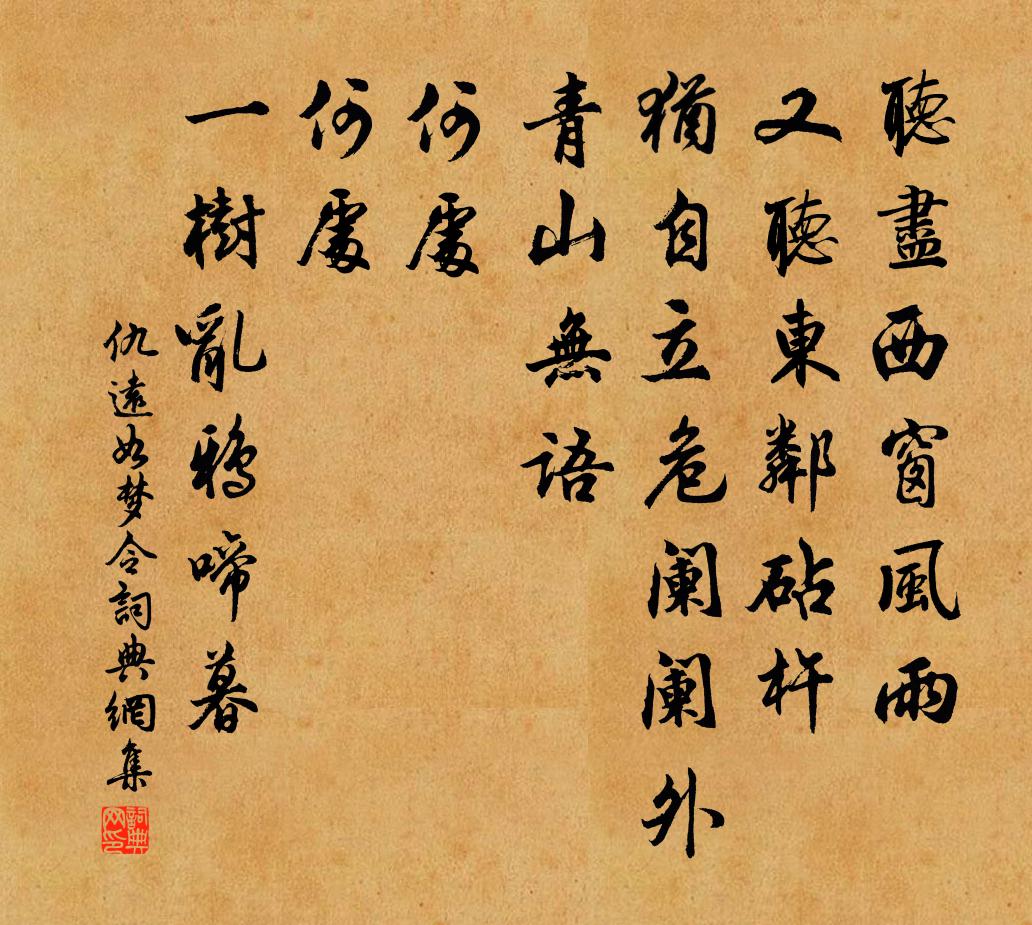 聽盡西窗風雨
又聽東鄰砧杵
猶自立危闌闌外
青山無語
何處
何處
一樹亂鴉啼暮
仇遠如梦令詞典網集
詞典网印